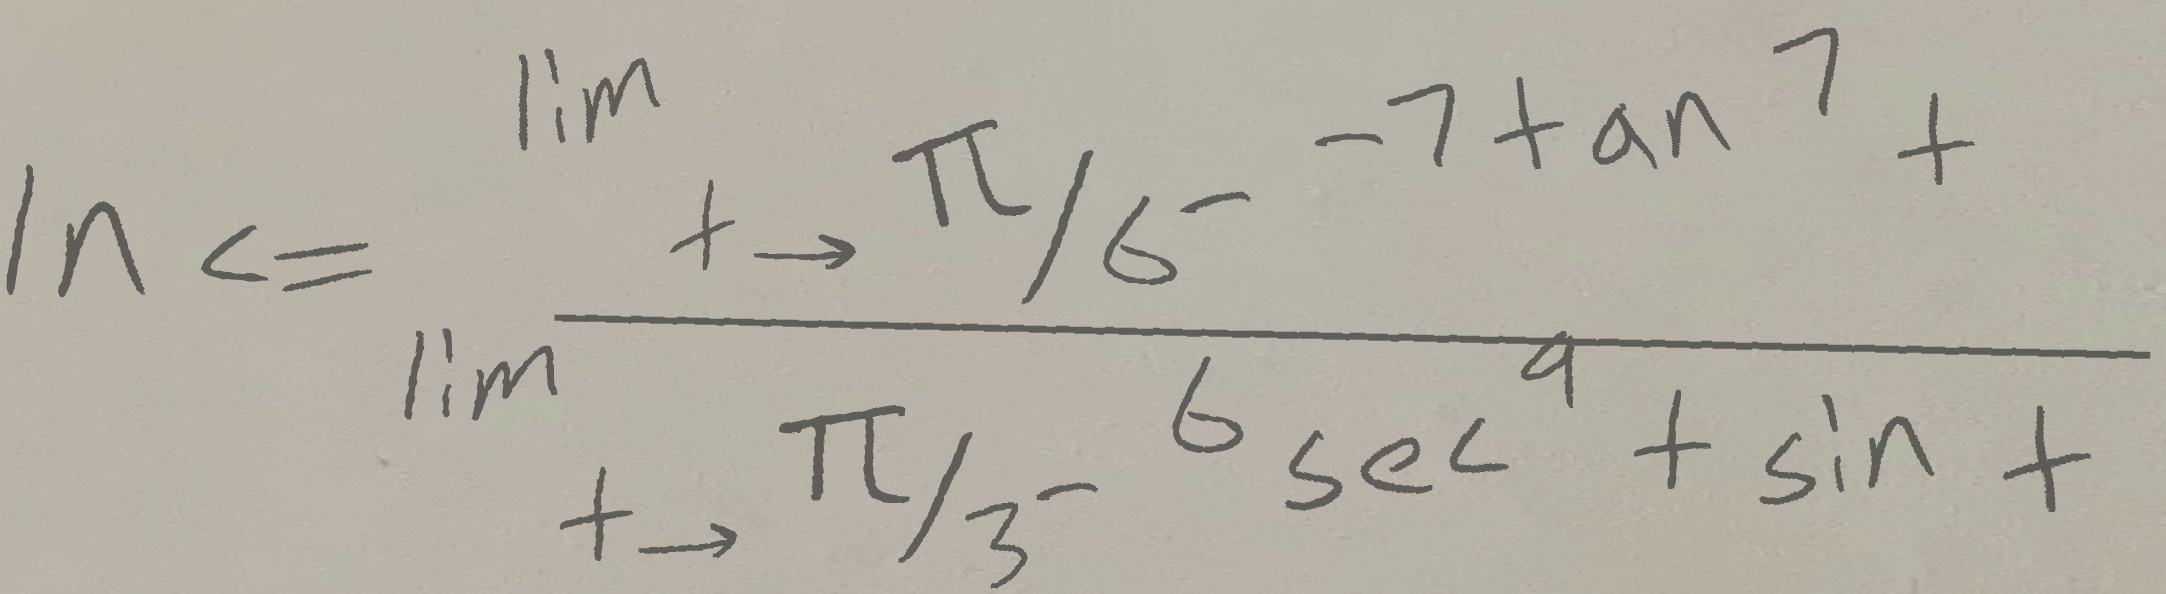 \ln c = \frac{\lim_{t \to \pi/6^-} -7 \tan^7 t}{\lim_{t \to \pi/3^-} 6 \sec^9 t \sin t}